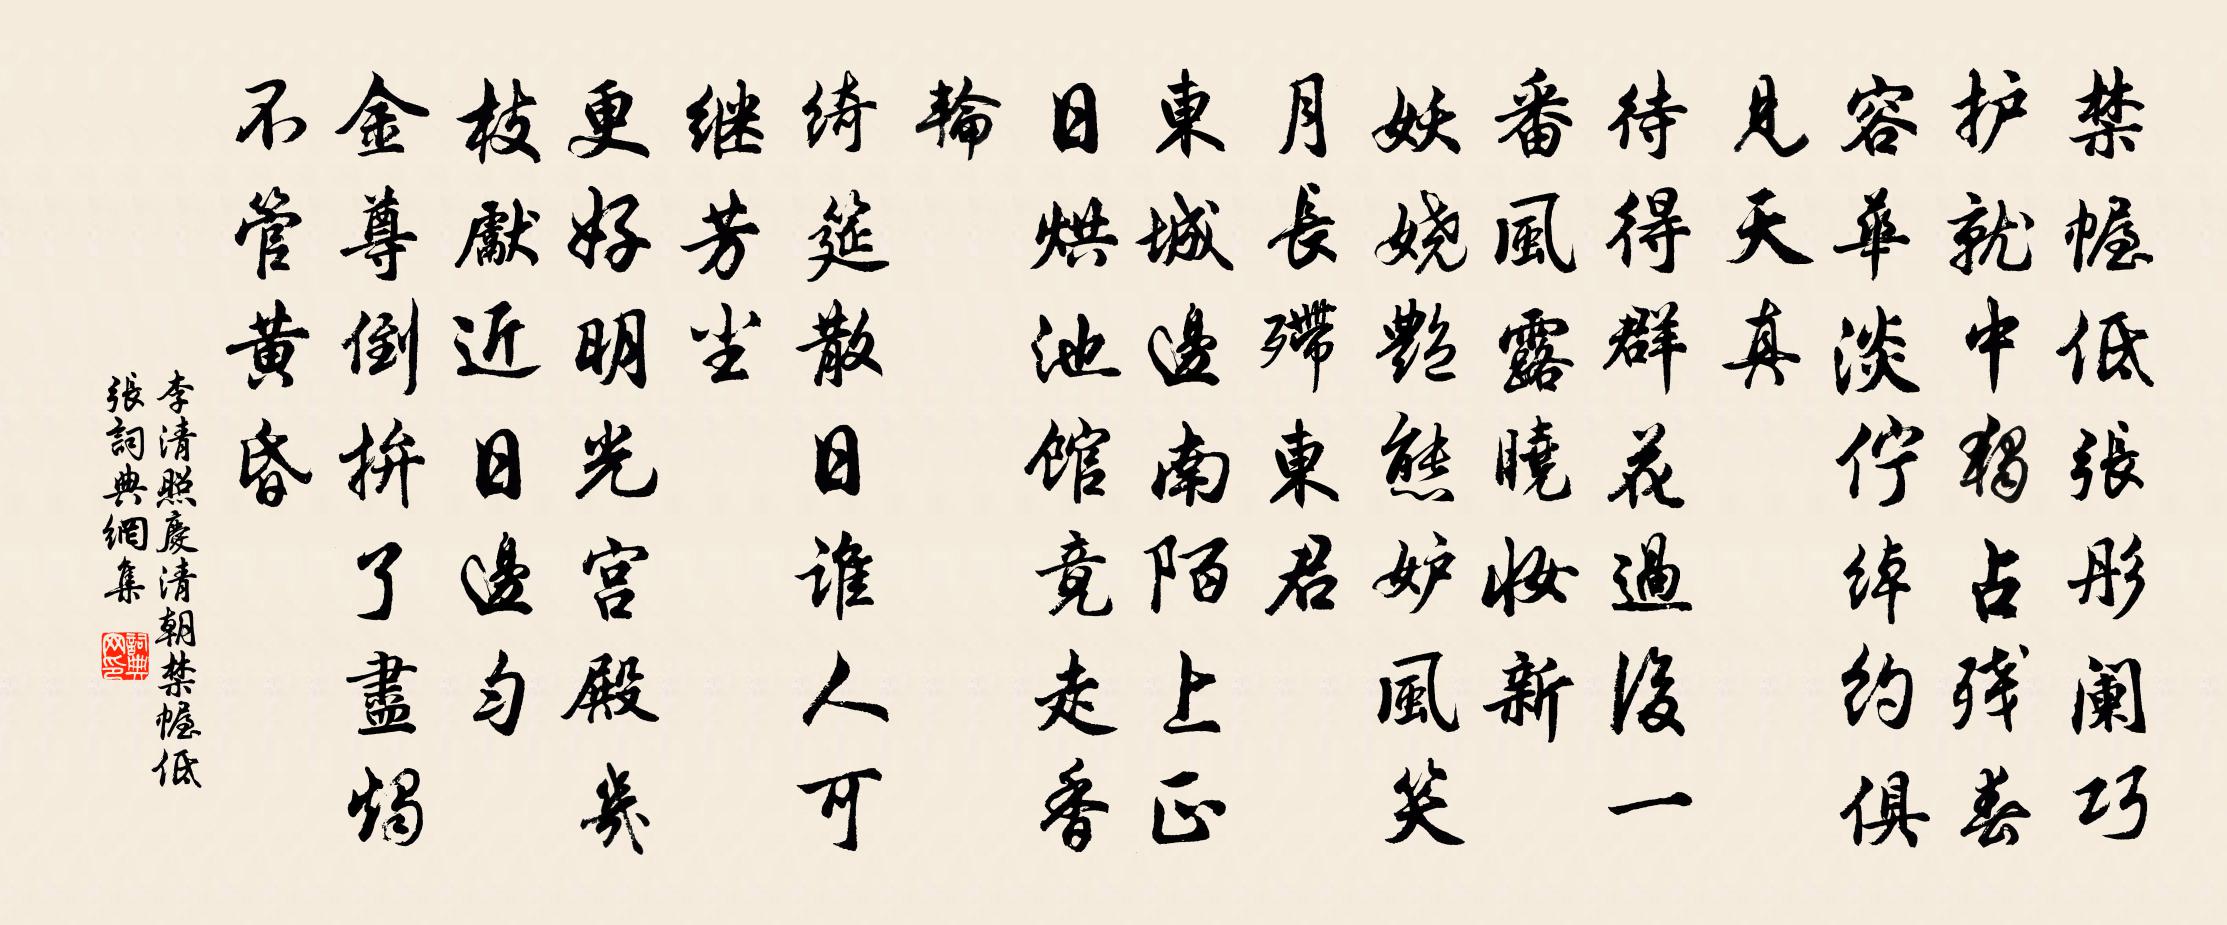 禁幄低張彤阑巧
护就中獨占残春
容華淡佇綽约俱
見天真
待得群花過後一
番風露曉妆新
妖娆艷態妒風笑
月長殢東君
東城邊南陌上正
日烘池馆竞走香
輪
绮筵散日谁人可
继芳尘
更好明光宫殿幾
枝獻近日邊匀
金尊倒拚了盡燭
不管黄昏
李清照慶清朝禁幄低
張詞典網集
詞典网印